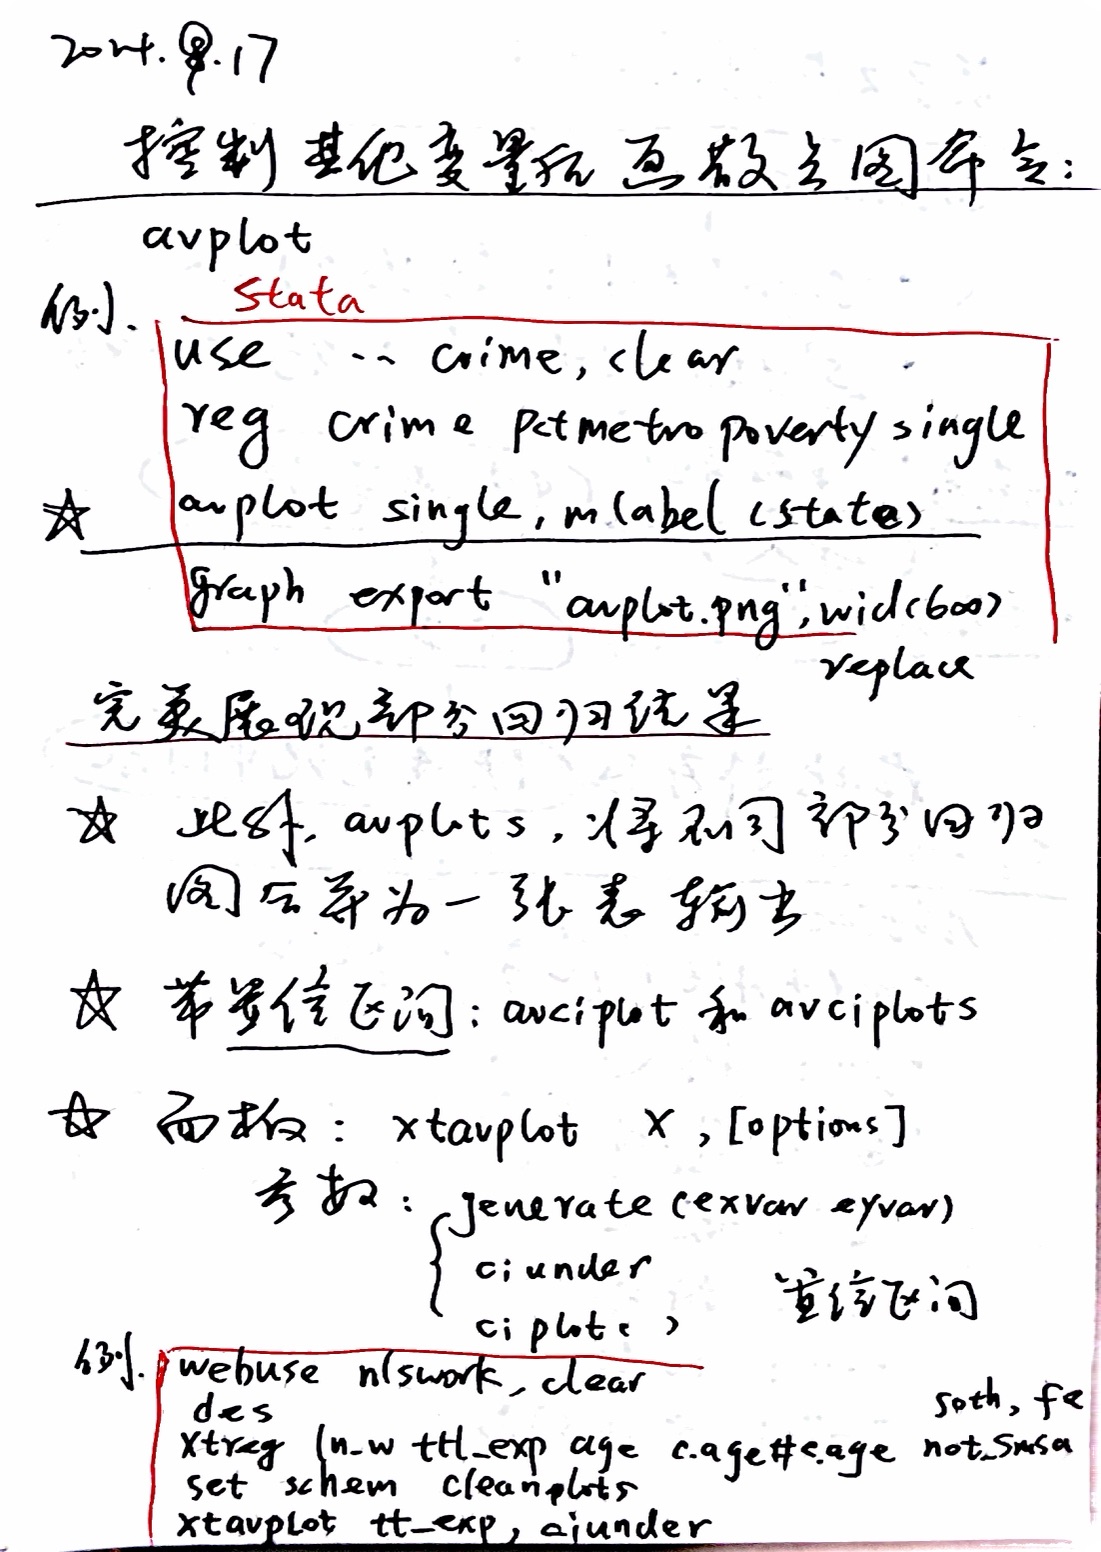 2024.8.17
控制其他变量后画散点图命令:
avplot
例. Stata
use ·· crime, clear
reg crime pctmetro poverty single
☆ avplot single, mlabel (state)
graph export "avplot.png", wid(600)
replace
完美展现部分回归结果
☆ 此外, avplots, 将不同部分回归
图合并为一张表输出
☆ 带置信区间: avciplot 和 avciplots
☆ 面板: xtavplot X, [options]
参数: generate (exvar eyvar)
ciunder
ciplot( ) 置信区间
例. webuse nlswork, clear
des
south, fe
xtreg ln_w ttl_exp age c.age#c.age not_smsa
set schem cleanplots
xtavplot tt_exp, ciunder